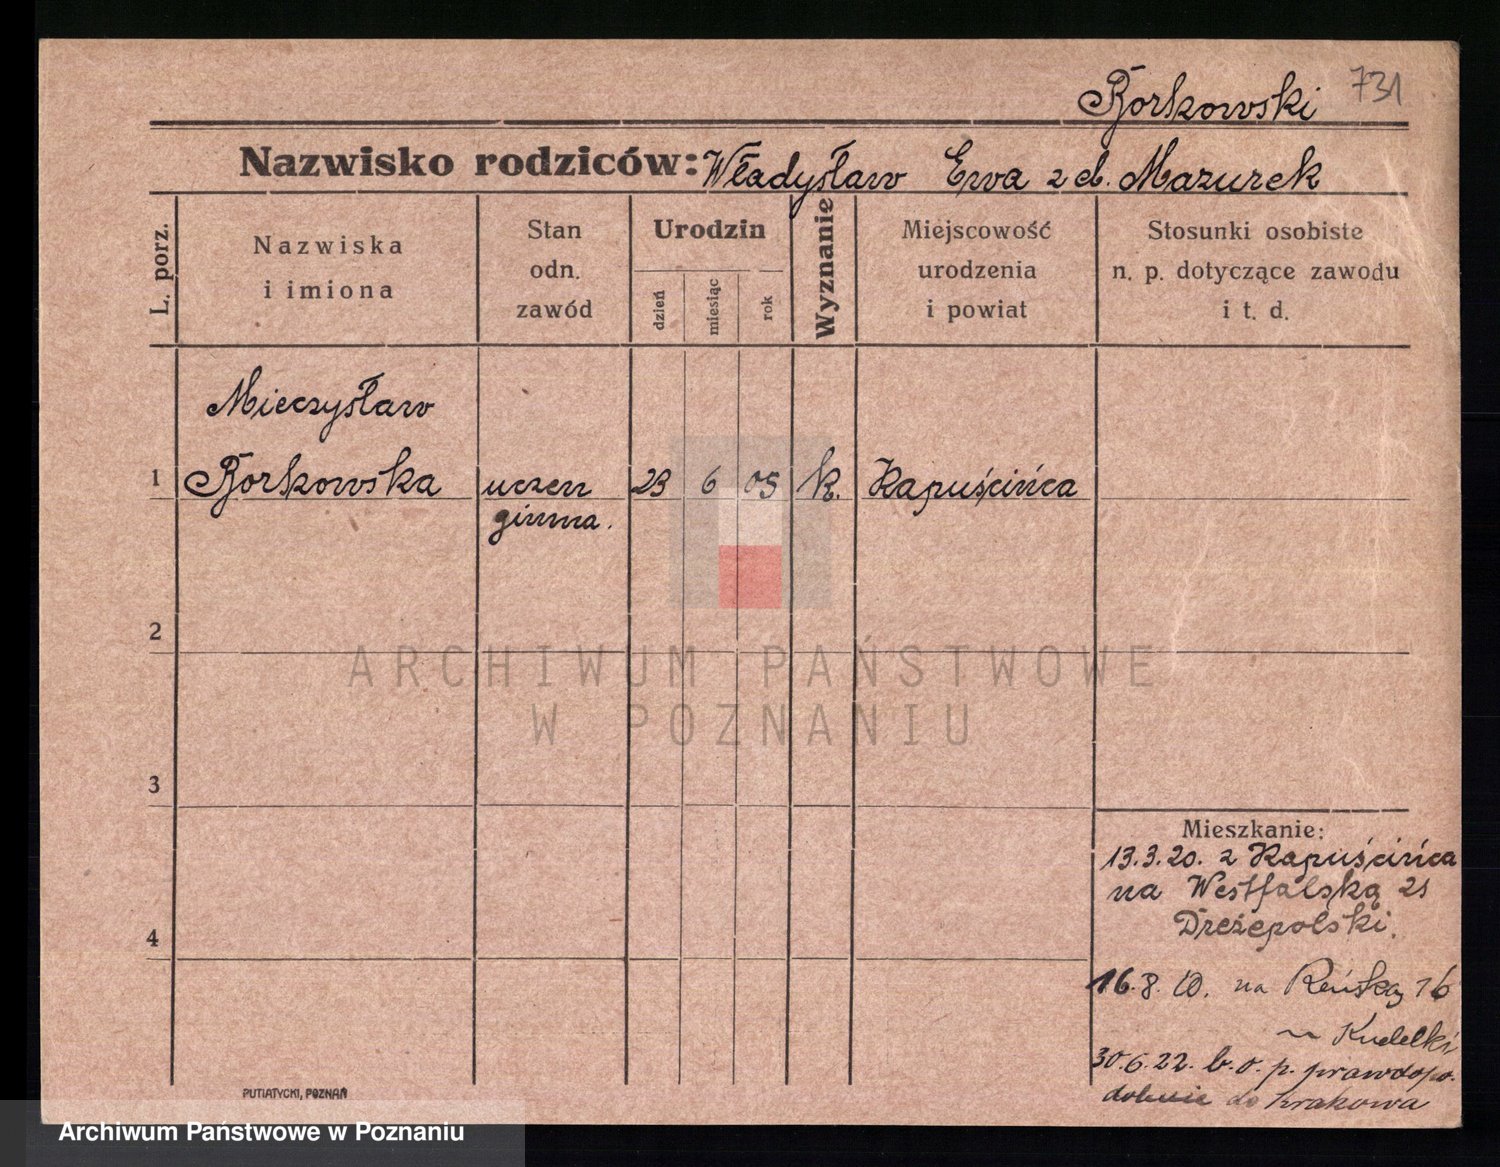 Borkowski 731
Nazwisko rodziców: Władysław Ewa z d. Mazurek
L. porz.
Nazwiska
i imiona
Stan
odn.
zawód
Urodzin
dzień
miesiąc
rok
Wyznanie
Miejscowość
urodzenia
i powiat
Stosunki osobiste
n. p. dotyczące zawodu
i t. d.
Mieczysław
1 Borkowska uczen 23 6 05 k. Kapuścińca
gimna.
2
3
4
Mieszkanie:
13.3.20. z Kapuścińca
na Westfalską 21
Dreżepolski.
16.8. na Reńską 16
Kudelki
30.6.22. b. o. p. prawdopo-
dobnie do Krakowa
PUTIATYCKI, POZNAŃ
ARCHIWUM PAŃSTWOWE
W POZNANIU
Archiwum Państwowe w Poznaniu